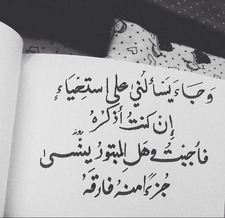 وَجَاءَ يَسألُنِي عَلى إستِحْيَاءٍ
إن كنتُ أذكرُهُ
فأجبتُ وَهَل المبتورُ يَنْسىٰ
جُزءًا منهُ فارقَهُ